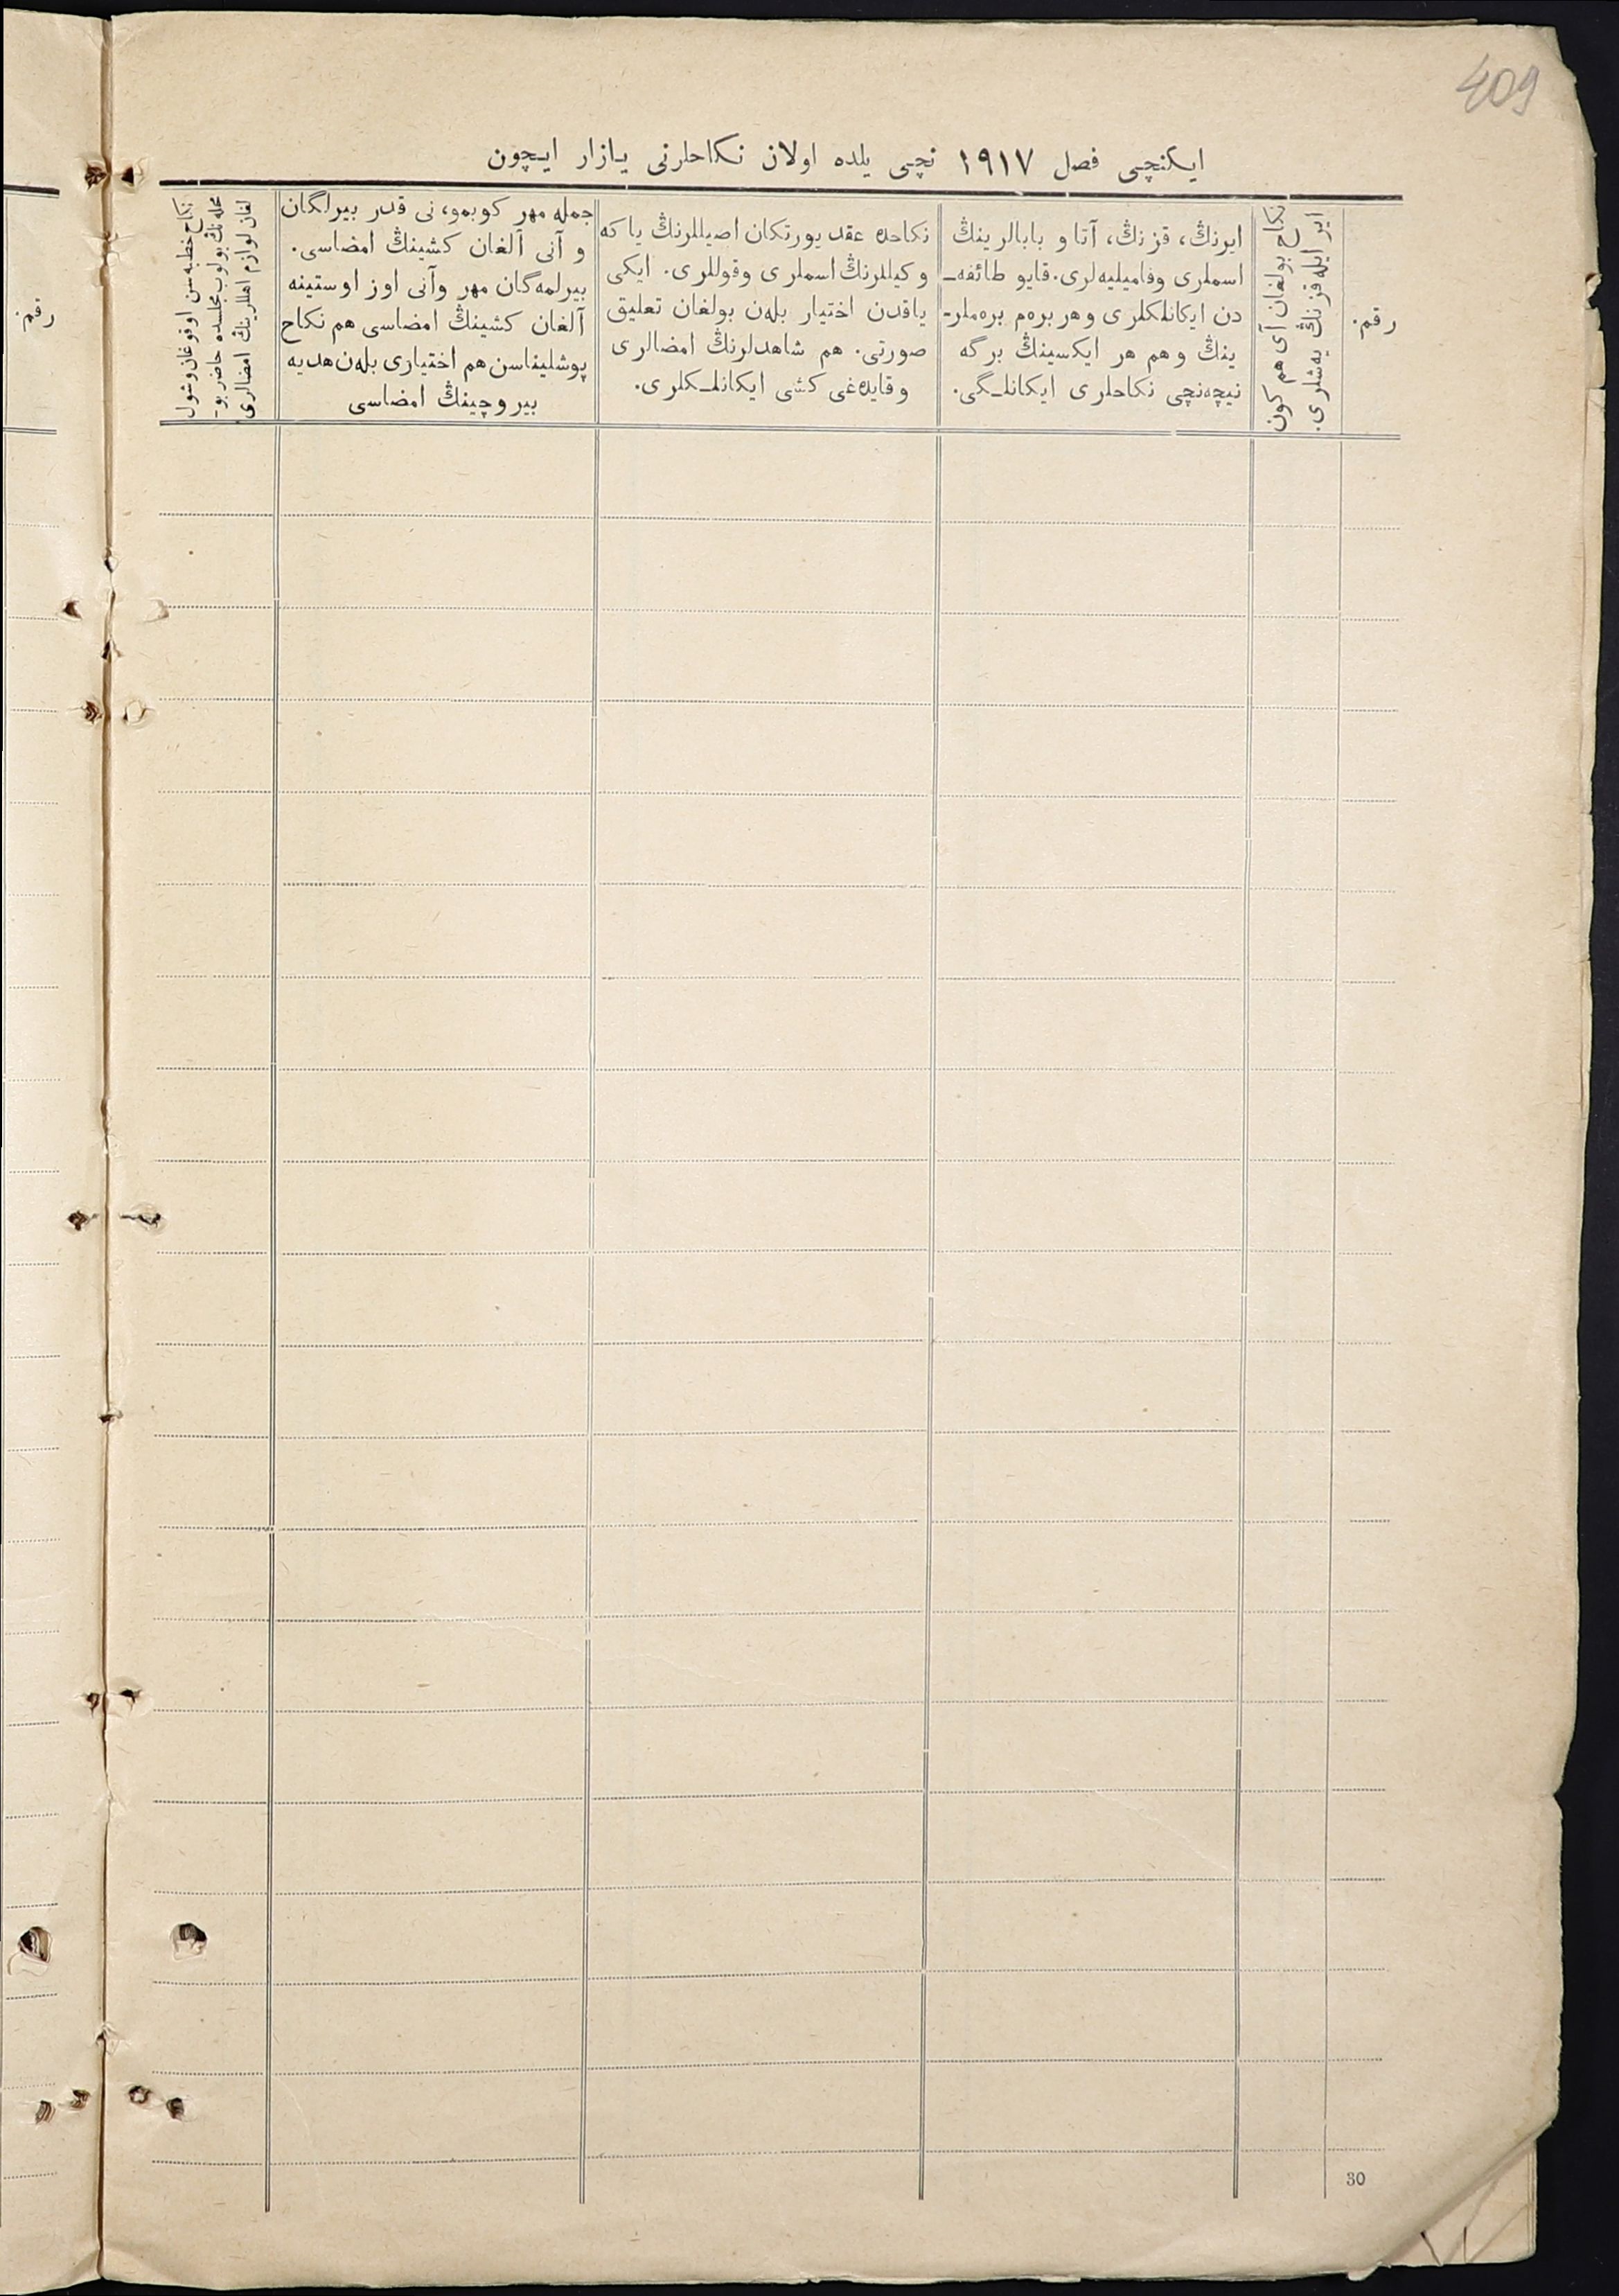 409
ایکنچی فصل ١٩١٧ نچی یلده اولان نکاحلرنی یازار ایچون
رقم.
ایر ایله قز نڭ یه‌شلری.
نکاح بولغان آی هم کون
ایرنڭ، قز نڭ، آتا و بابالرینڭ
اسملری وفامیلیه‌لری. قایو طائفه‌ـ
دن ایکانلکلری و هر بره‌م بره‌ملرـ
ینڭ و هم هر ایکسینڭ برگه
نیچه‌نچی نکاحلری ایکانلـگی.
نکاحده عقد یورتکان اصیللرنڭ یا که
وکیللرنڭ اسملری وقوللری. ایکی
یاقدن اختیار بله‌ن بولغان تعلیق
صورتی. هم شاهدلرنڭ امضالری
وقایده‌غی کشی ایکانلـکلری.
جمله مهر کوبمو، نی قدر بیرلگان
و آنی آلغان کشینڭ امضاسی.
بیرلمه‌گان مهر وآنی اوز اوستینه
آلغان کشینڭ امضاسی هم نکاح
پوشلیناسن هم اختیاری بله‌ن هدیه
بیروچینڭ امضاسی
نکاح خطبه‌سن اوقوغان وشول
محله‌نڭ بولوب مجلسده حاضر بوـ
لغان لوازم اهللرینڭ امضالری
رقم.
30